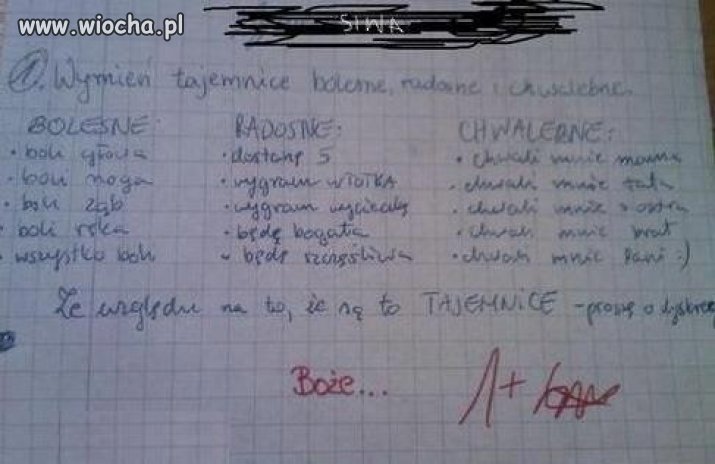 www.wiocha.pl
SIWA
1. Wymień tajemnice bolesne, radosne i chwalebne.
BOLESNE: RADOSNE: CHWALEBNE:
• boli głowa • dostanę 5 • chwali mnie mama
• boli noga • wygram wTOTKA • chwali mnie tata
• boli ząb • wygram wycieczkę • chwali mnie siostra
• boli ręka • będę bogata • chwali mnie brat
• wszystko boli • będę szczęśliwa • chwali mnie Pani :)
Ze względu na to, że są to TAJEMNICE - proszę o
Boże... 1+